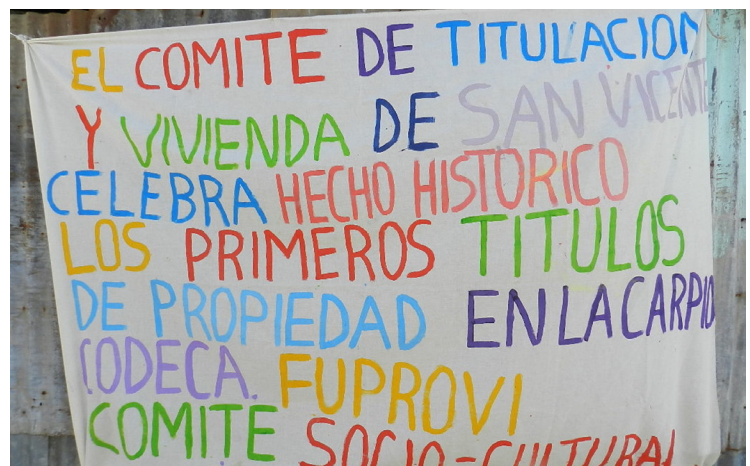 EL COMITE DE TITULACION
Y VIVIENDA DE SAN VICENTE
CELEBRA HECHO HISTORICO
LOS PRIMEROS TITULOS
DE PROPIEDAD EN LA CARPIO
CODECA. FUPROVI
COMITE SOCIO-CULTURAL